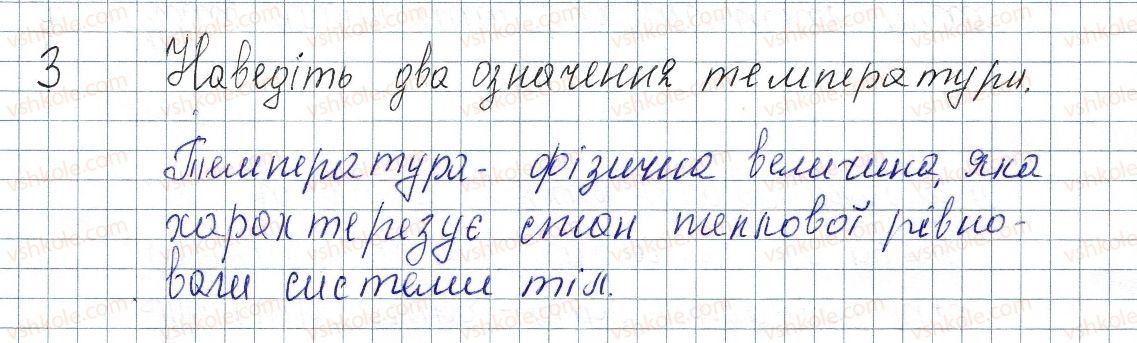 3 Наведіть два означення температури.
Температура - фізична величина, яка
характерезує стан теплової рівно-
ваги системи тіл.